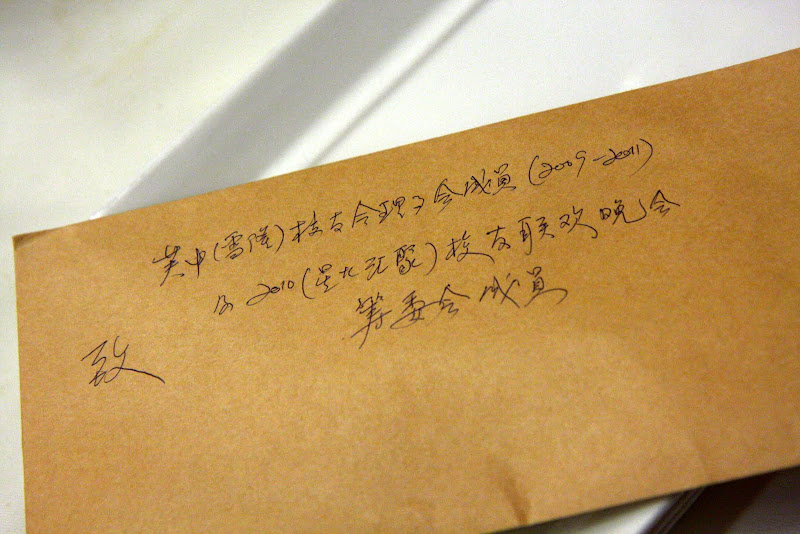 芙中(雪隆)校友会理事会成員(2009-2011)
及2010(星光汇聚)校友联欢晚会
筹委会成員
致